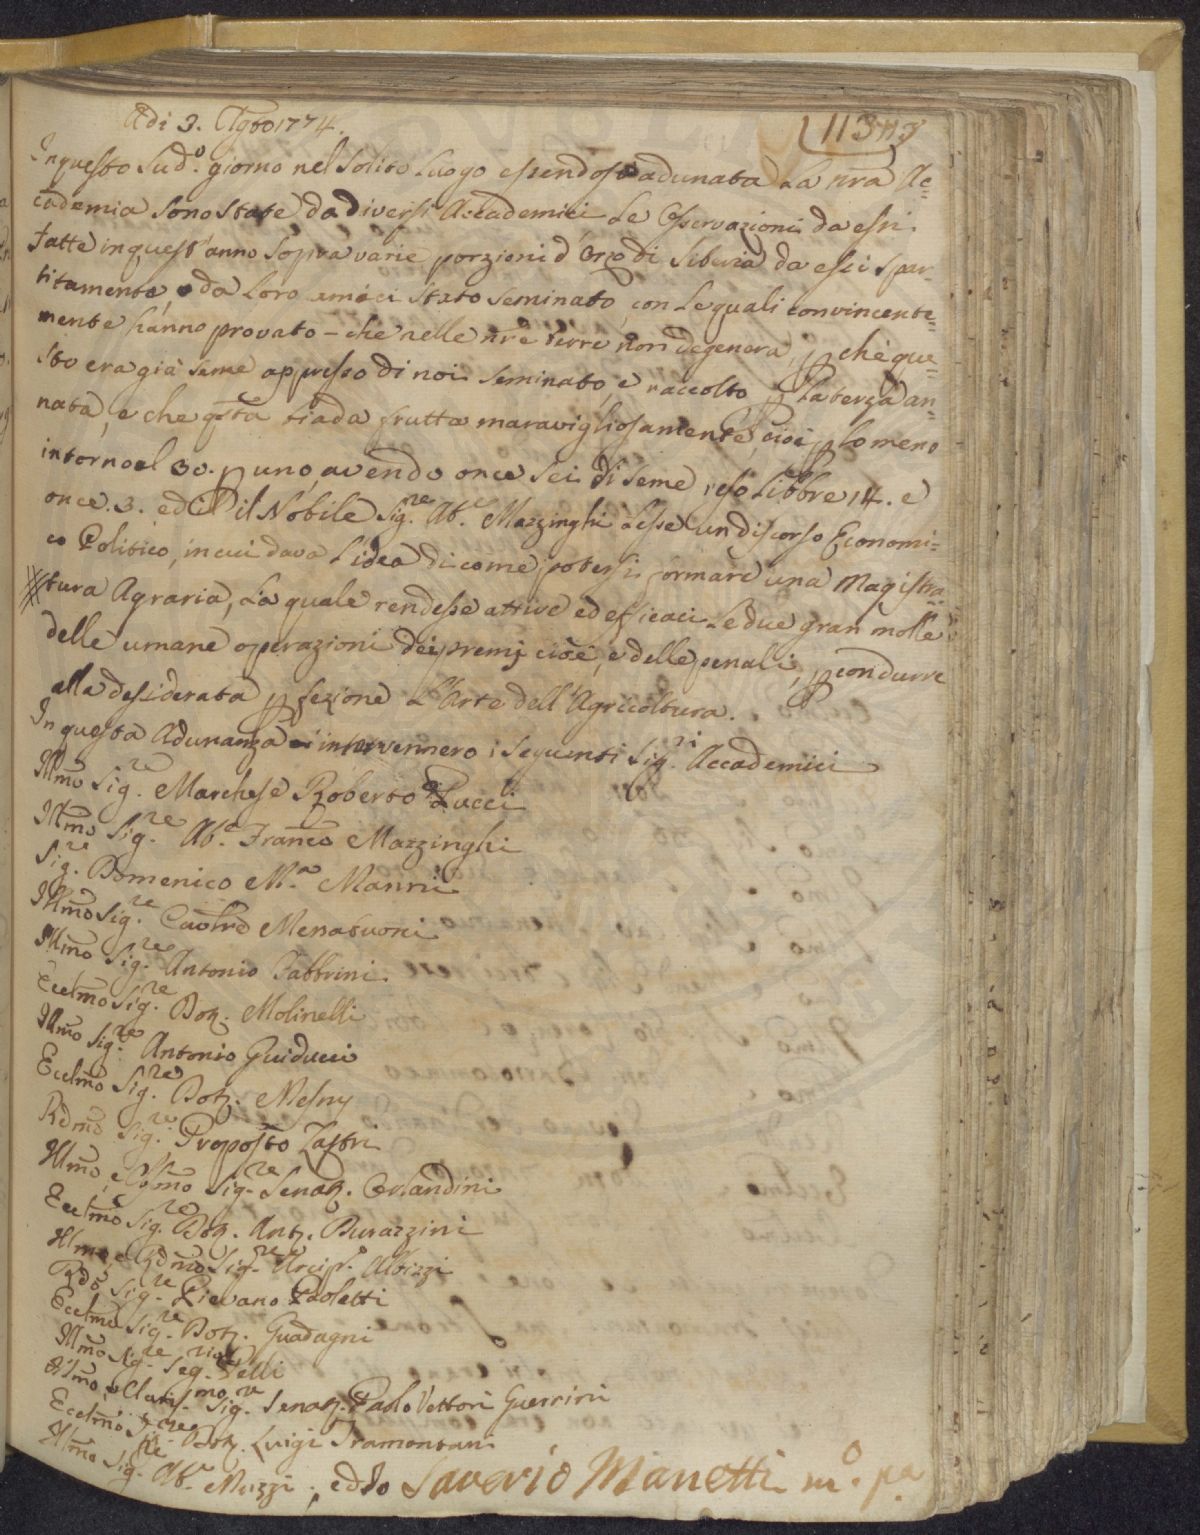 Adi 3. Agto 1774.
113
In questo sud.o giorno nel solito Luogo essendosi adunata La nra Ac=
cademia sono state da diversi Accademici Le Osservazioni da essi
fatte in quest'anno sopra varie porzioni d'Orzo di Siberia da essi spar=
titamente, e da Loro amici stato seminato, con Le quali convincente=
mente hanno provato - che nelle nre terre non degenera, p che que=
sto era già seme appresso di noi seminato, e raccolto p La terza an=
nata, e che qsta biada frutta maravigliosamente, cioè p Lo meno
intorno al 30. p uno, avendo once sei di seme reso Libbre 14. e
once .3. ed il Nobile Sig.re Ab.e Mazzinghi Lesse un discorso Economi=
co Politico, in cui dava L'idea di come potersi formare una Magistra=
tura Agraria, La quale rendesse attive ed efficaci Le due gran molle
delle umane operazioni dei premj cioè, e delle penali, p condurre
alla desiderata pfezione L'Arte dell'Agricoltura.
In questa Adunanza intervennero i seguenti Sig.ri Accademici
Illmo Sig.re Marchese Roberto Pucci
Illmo Sig.re Ab.e Franco Mazzinghi
Sig.re Domenico M.a Manni
Illmo Sig.re Menabuoni
Illmo Sig.re Antonio Fabbrini
Eccelmo Sig.re Dott. Molinelli
Illmo Sig.re Antonio Guiducci
Eccelmo Sig.re Dott. Mesny
Rdmo Sig.re Proposto Lastri
Illmo, e Sig.re Senat. Orlandini
Eccelmo Sig.re Dott. Ant. Durazzini
Illmo, e Rdmo Sig.re Arcip.e Albizzi
Rdo Sig.re Pievano Paoletti
Eccelmo Sig.re Dott. Guadagni
Illmo Sig.re Seg.rio Pelli
Illmo, e Claris.mo Sig.re Senat. Paolo Vettori Guerrini
Eccelmo Sig.re Dott. Luigi Tramontani
Illmo Sig.re Ab.e Muzzi; ed Io Saverio Manetti m.o p.a